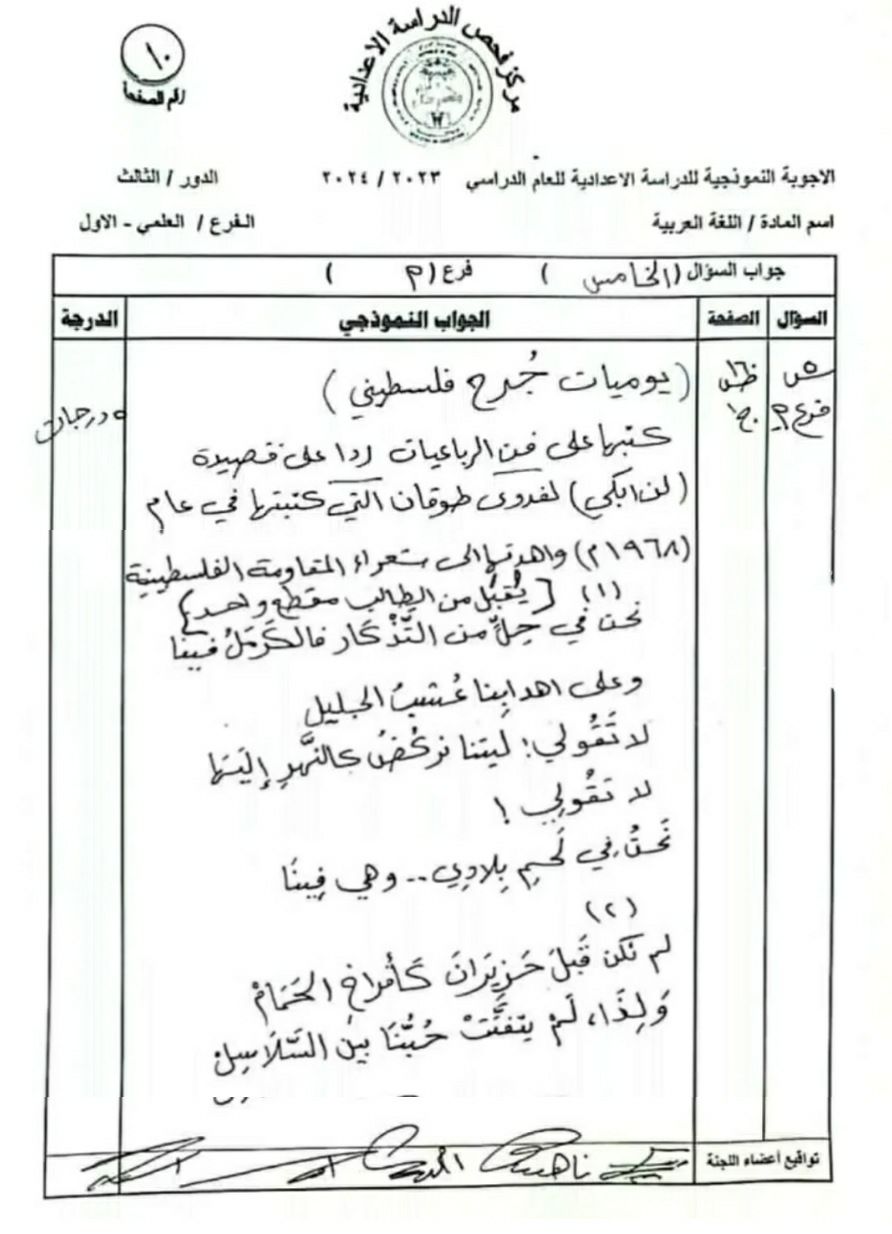 مركز فحص الدراسة الاعدادية
١٠
رقم الصفحة
الاجوبة النموذجية للدراسة الاعدادية للعام الدراسي ٢٠٢٣ / ٢٠٢٤ الدور / الثالث
اسم المادة / اللغة العربية الفرع / العلمي - الاول
جواب السؤال ( الخامس ) فرع ( م )
السؤال الصفحة الجواب النموذجي الدرجة
س٥ ص١٦ ( يوميات جُرح فلسطيني )
فرع م ج١ ٥ درجات
كتبها على فن الرباعيات ردا على قصيدة
(لن ابكي) لفدوى طوقان التي كتبتها في عام
(١٩٦٨م) واهدتها الى شعراء المقاومة الفلسطينية
(١) [ يُقبَل من الطالب مقطع واحد ]
نحن في حِلٍّ من التَّذْكَار فالكَرْمَلُ فينا
وعلى اهدابنا عُشبُ الجليل
لا تَقُولي: ليتنا نركُضُ كالنَّهرِ إِلَيها
لا تقُولِي !
نَحنُ في لَحمِ بِلادِي .. وهي فِينَا
(٢)
لم نكن قَبلَ حَزِيرَانَ كَأَفرَاخِ الحَمَامْ
وَلِذَا، لَمْ يتفتَّتْ حُبُّنَا بين السَّلَاسِلْ
تواقيع أعضاء اللجنة